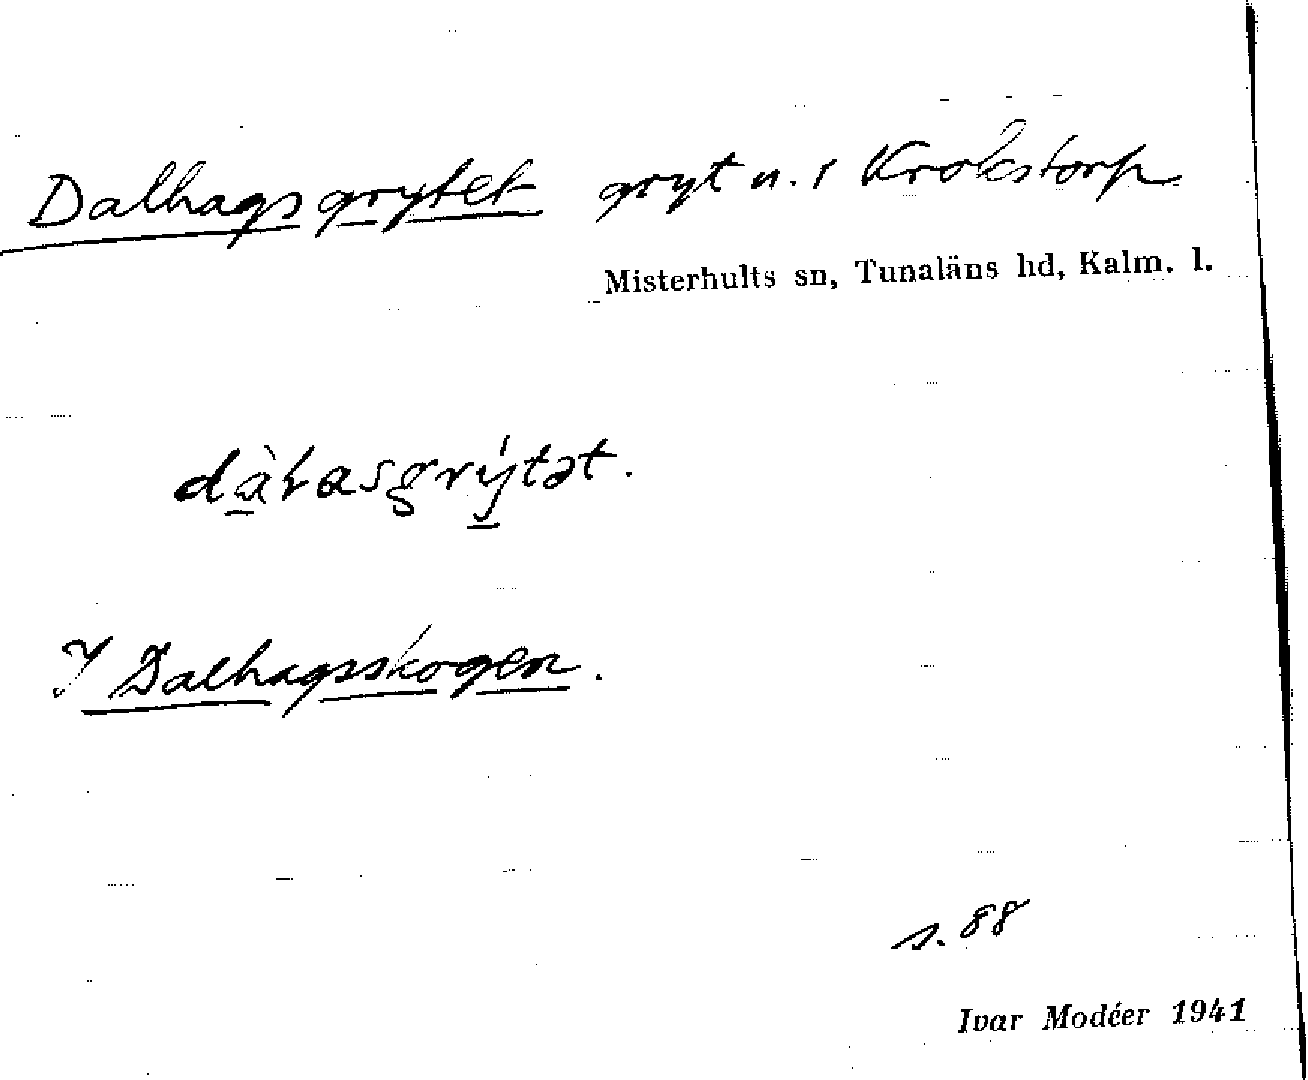 Dalhagsgrytet gryt n. i Krokstorp
Misterhults sn, Tunaläns hd, Kalm. l.
dàɫasgrýtət.
I Dalhagsskogen.
s. 88
Ivar Modéer 1941